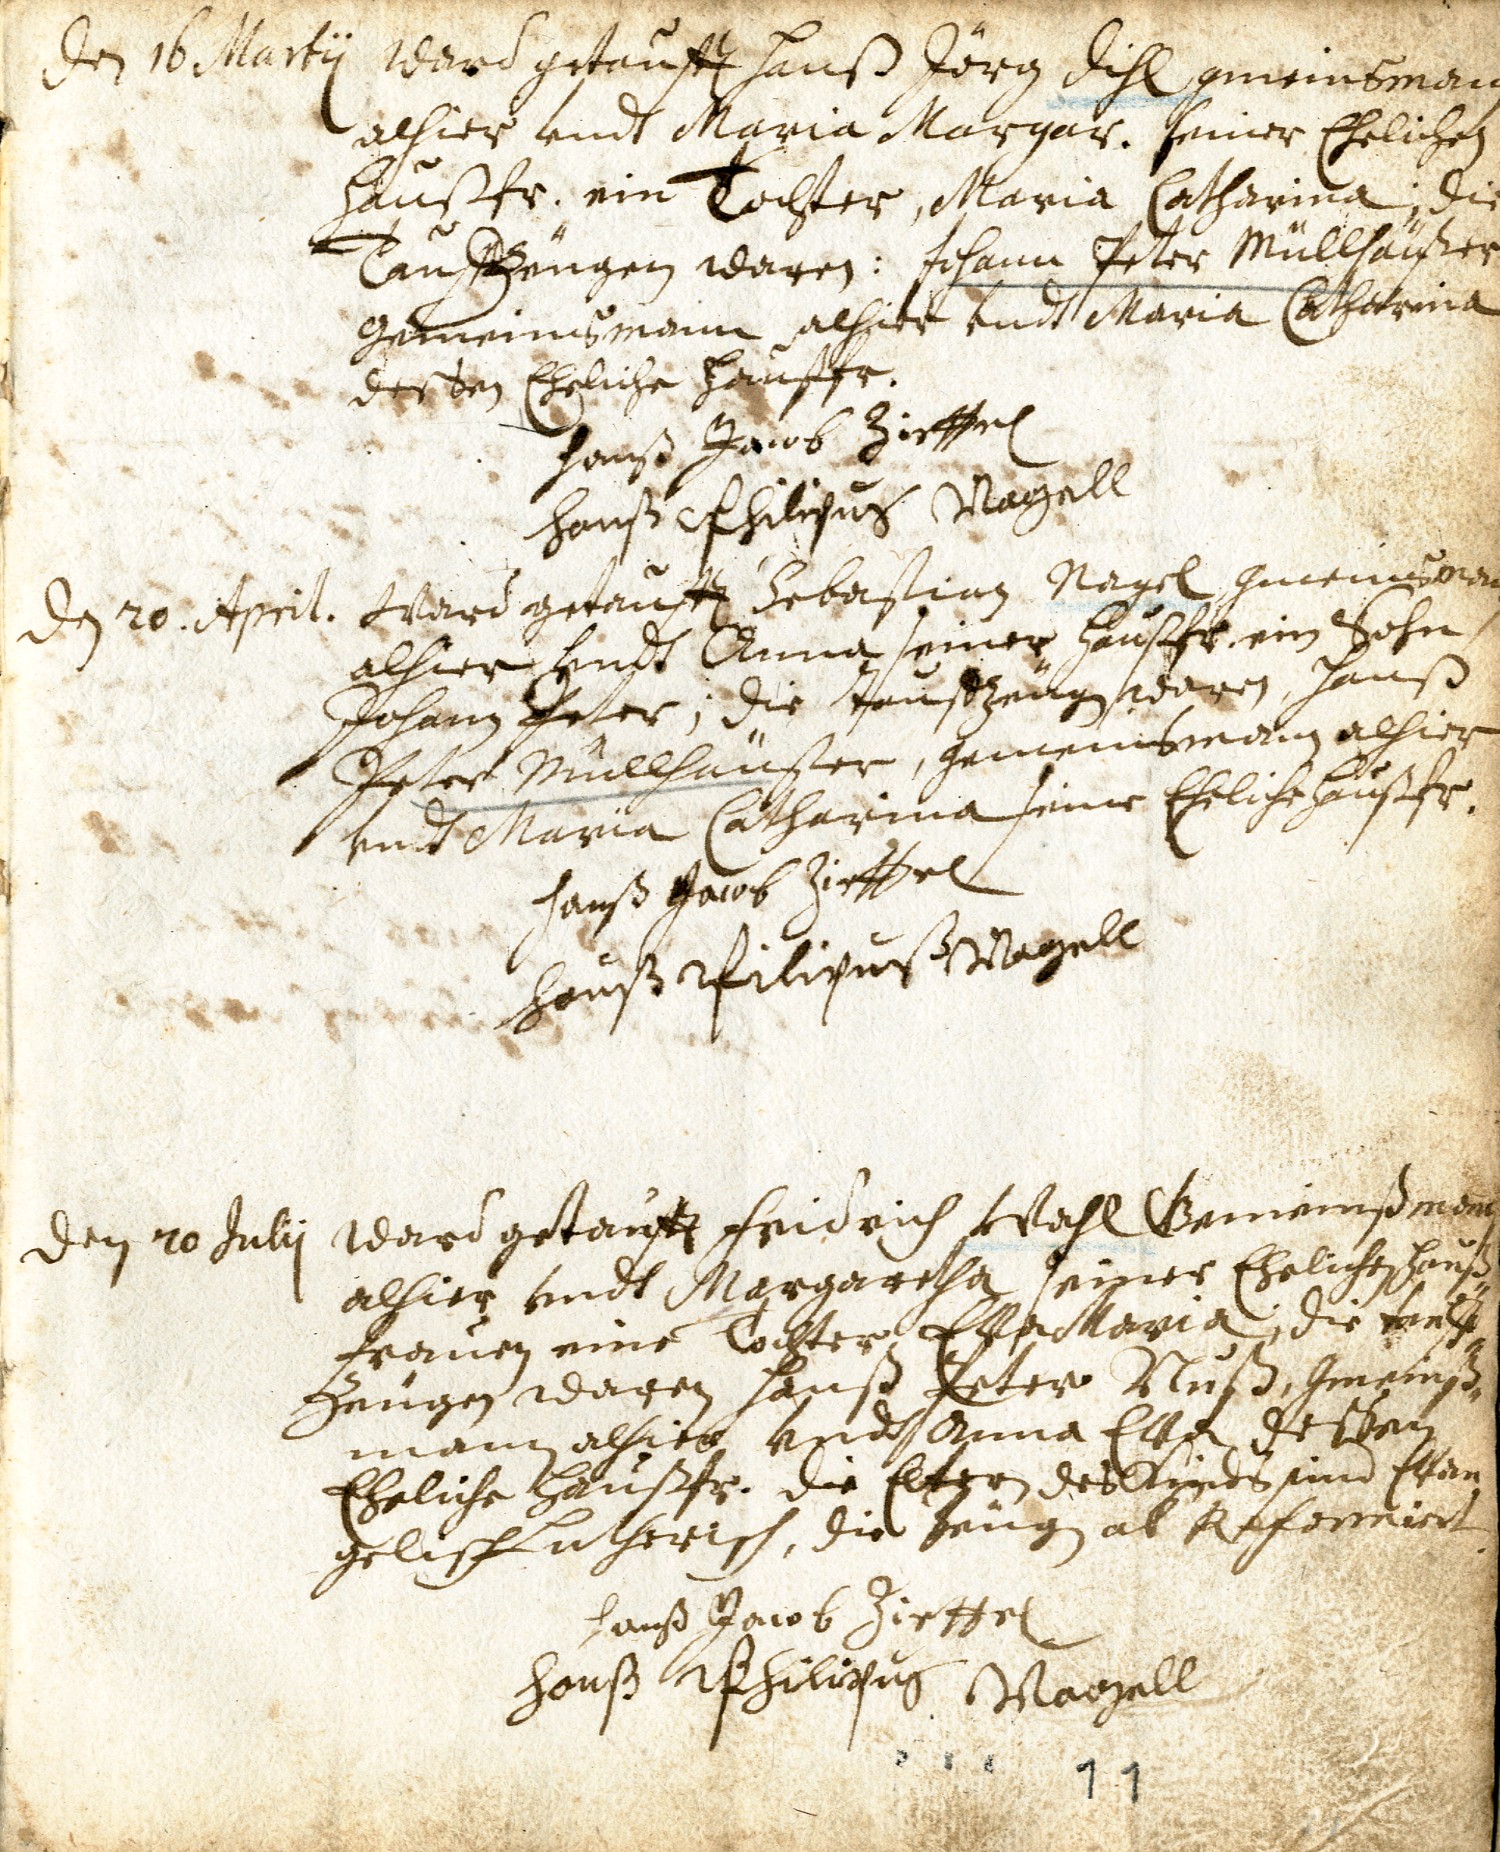 Den 16 Martij ward getaufft Hanß Jörg Dihl gmeinsman
alhier undt Maria Margar. seiner Ehelichen
Haußfr. ein Tochter, Maria Catharina; die
Tauffzeügen waren: Johann Peter Müllhäußer
Gemeinsmann alhier undt Maria Catharina
dessen Eheliche Haußfr.
Hanß Jacob Zieffel
Hanß Philipus Nagell
Den 20. April. Ward getaufft Sebastian Nagel Gmeinsman
alhier undt Anna seiner Haußfr. ein Sohn
Johann Peter; die tauffzeüg waren, Hanß
Peter Müllhäußer, Gemeinsmann alhier
undt Maria Catharina seine Eheliche Haußfr.
Hanß Jacob Zieffel
Hanß Filipuß Nagell
Den 20 Julij Ward getaufft Fridrich Wahl Gemeinßmann
alhier undt Margaretha seiner Ehelichen Hauß
frauen eine Tochter Eva Maria; die tauff
Zeügen waren Hanß Peter Nuß, Gmeinß-
mann alhier undt Anna Eva dessen
Eheliche Haußfr. die Eltern des Kinds sind Evan
gelisch Lutherisch, die Zeüg ab Reformiert
Hanß Jacob Zieffel
Hanß Philipus Nagell
11